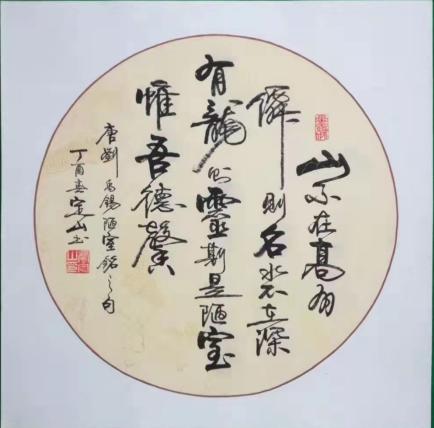 山不在高有
僊則名水不在深
有龍则靈斯是陋室
惟吾德馨
唐劉禹錫陋室銘之句
丁酉春山书